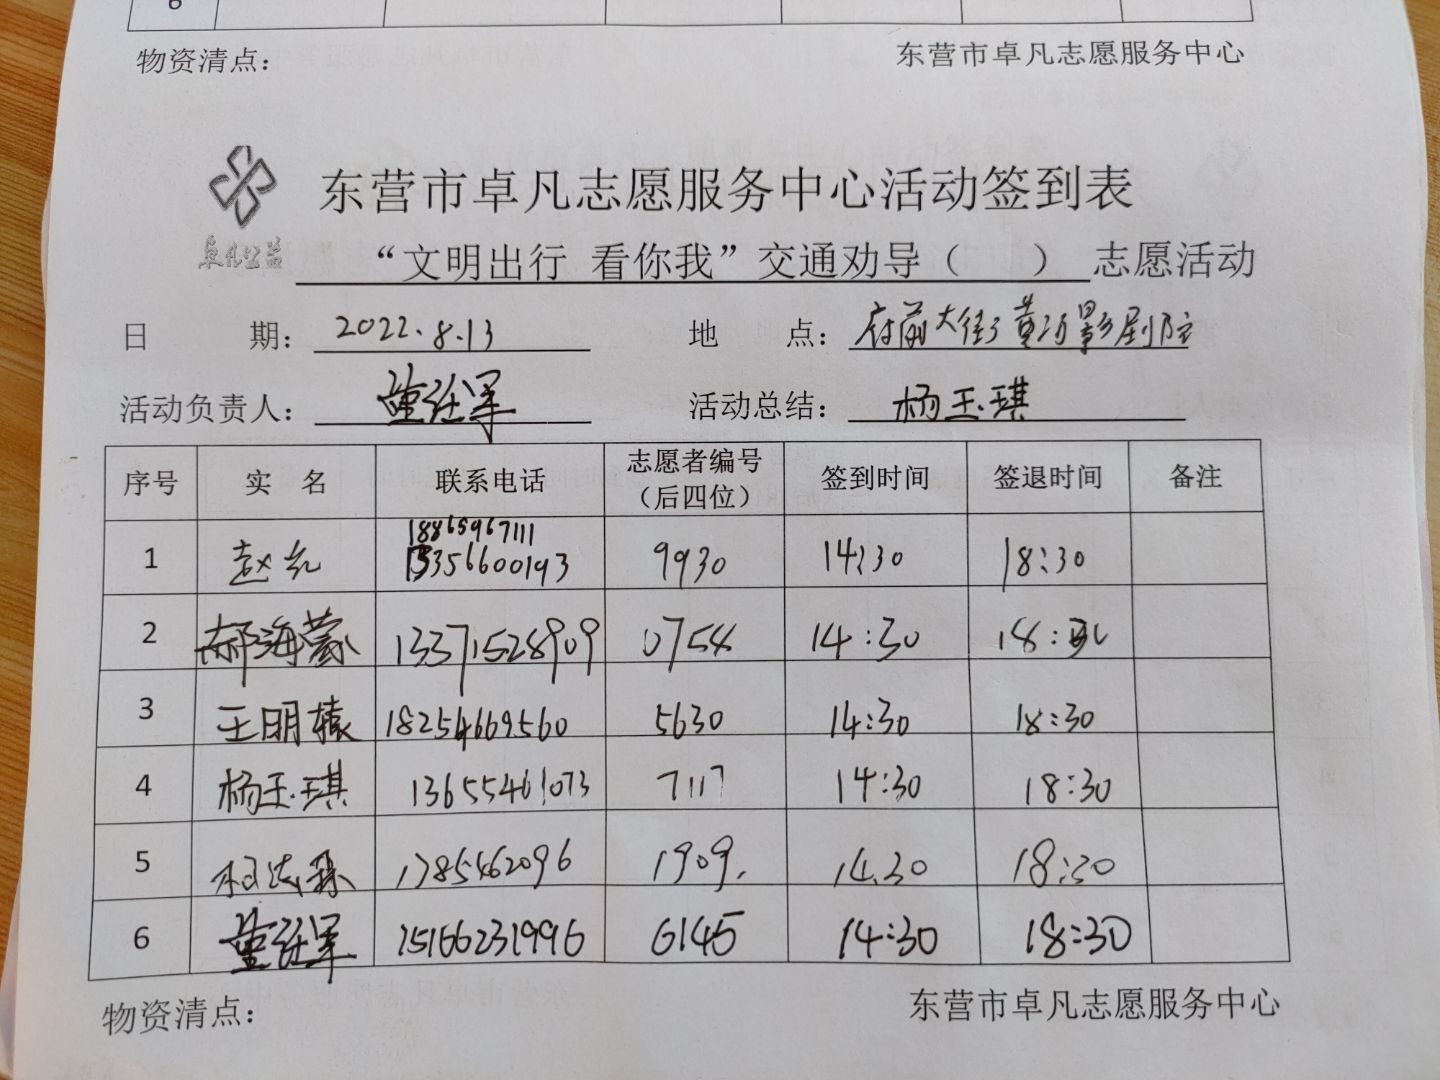 6
物资清点： 东营市卓凡志愿服务中心
东营市卓凡志愿服务中心活动签到表
卓凡公益
“文明出行 看你我”交通劝导（ ）志愿活动
日 期： 2022.8.13 地 点： 府前大街黄河影剧院
活动负责人： 董 军 活动总结： 杨玉琪
序号 实 名 联系电话 志愿者编号（后四位） 签到时间 签退时间 备注
18865967111
1 赵 13356600193 9930 14:30 18:30
2 郝海蒙 13371528909 0754 14:30 18:30
3 王明辕 18254669560 5630 14:30 18:30
4 杨玉琪 13655461073 7117 14:30 18:30
5 1785462096 1909. 14.30 18:30
6 董 军 15166231996 6145 14:30 18:30
物资清点： 东营市卓凡志愿服务中心